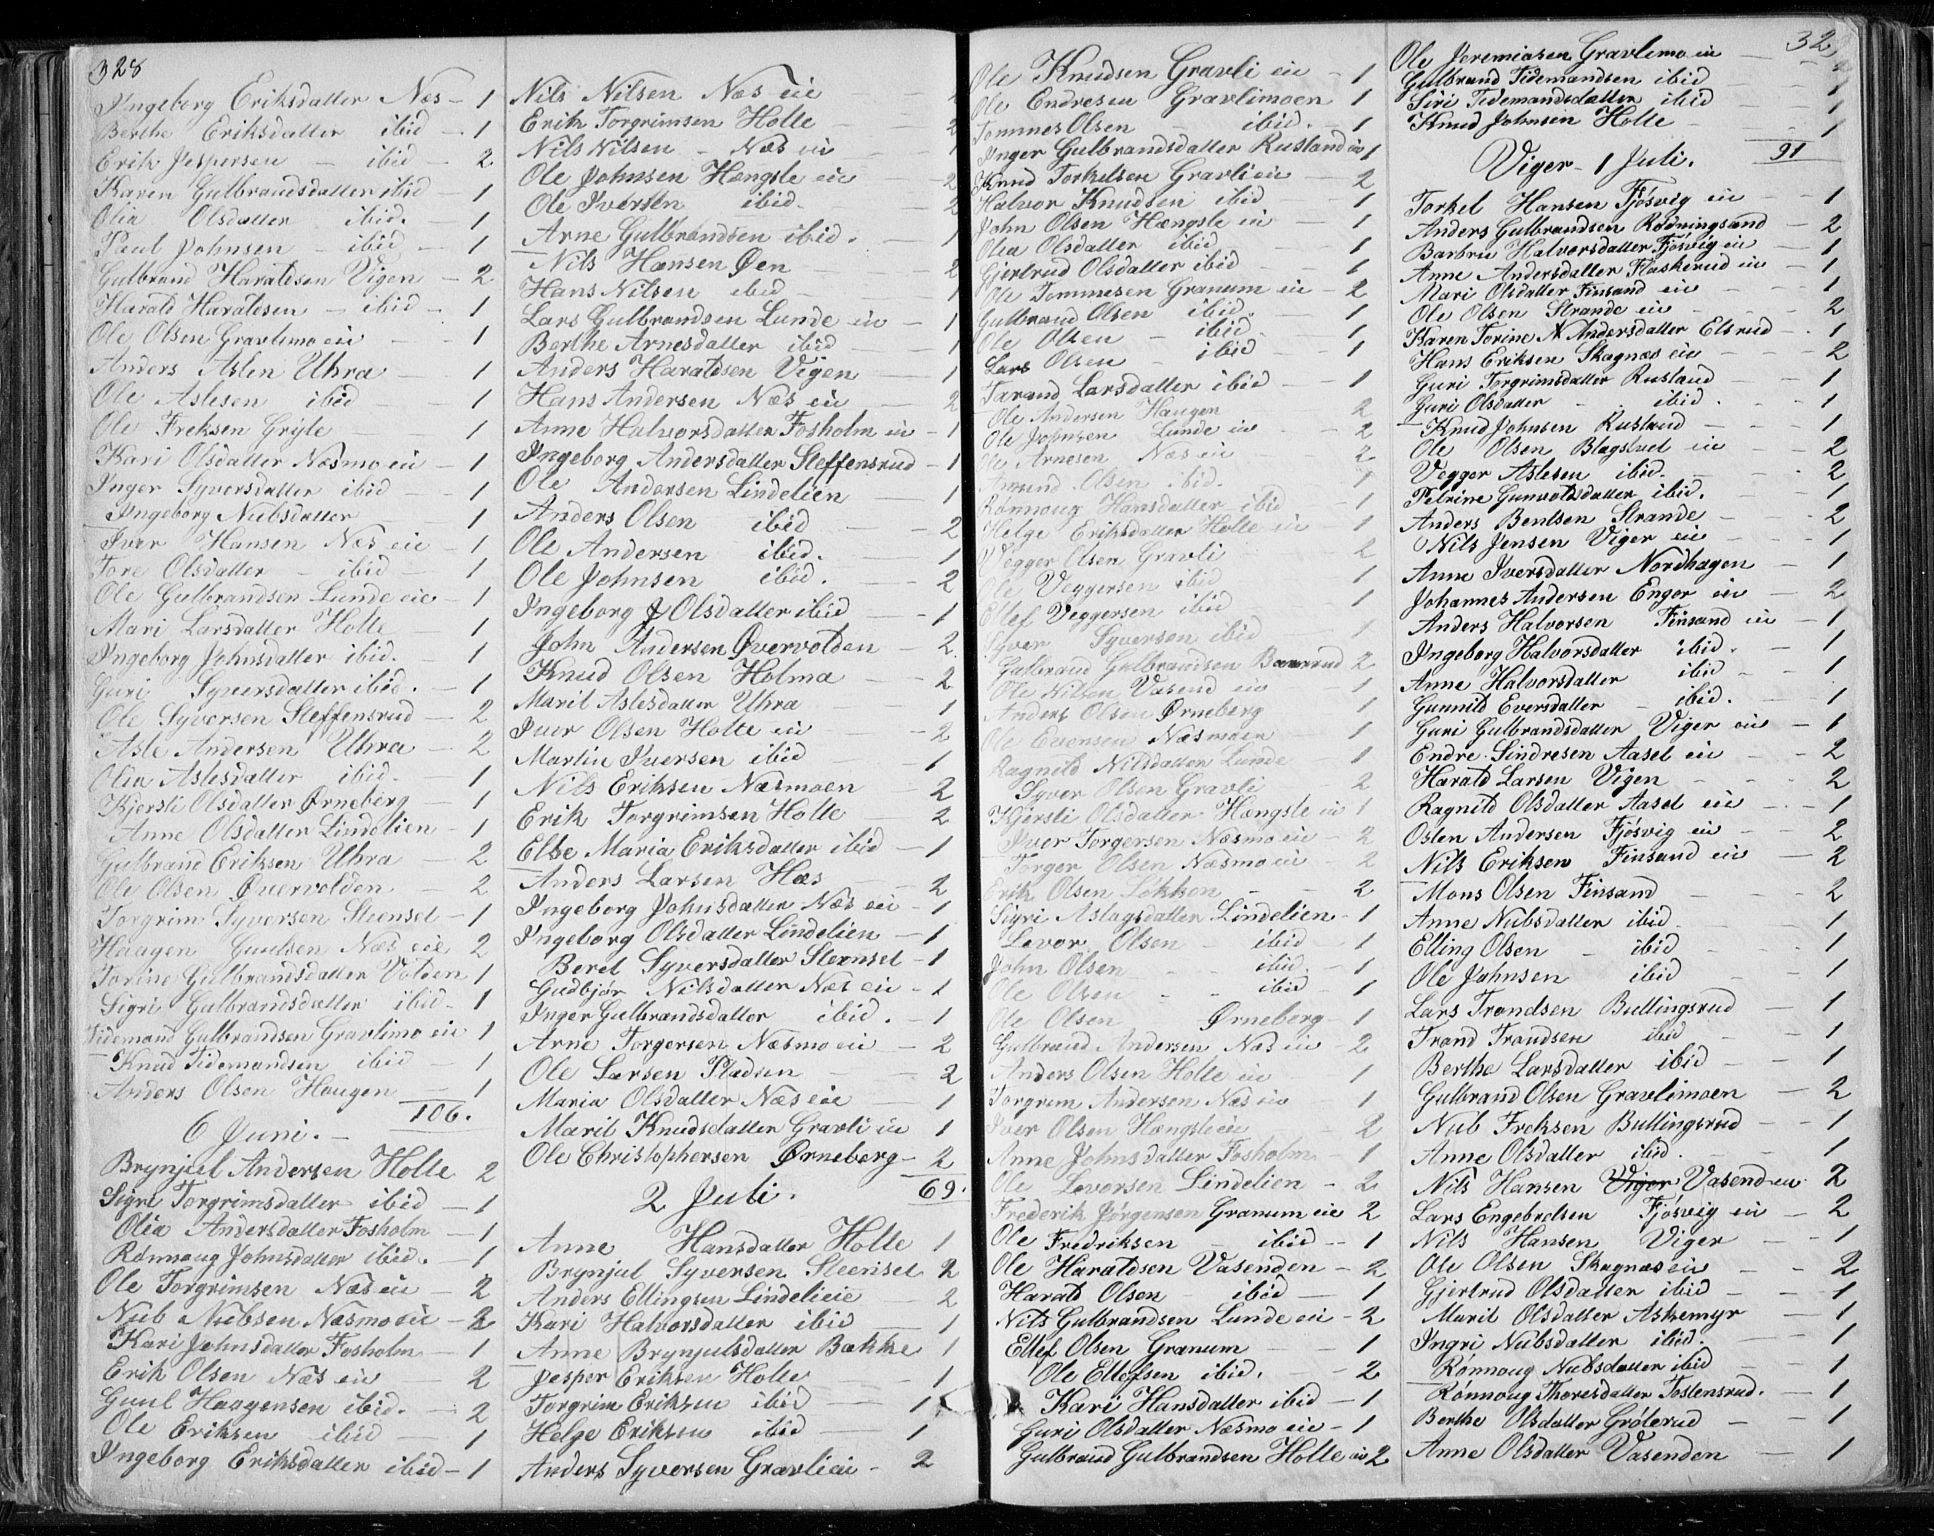 328
Ingeborg Eriksdatter Næs - 1
Berthe Eriksdatter ibid - 1
Erik Jespersen - ibid - 2
Karen Gulbrandsdatter ibid - 1
Olia Olsdatter ibid. 1
Paul Johnsen - ibid - 1
Gulbrand Haraldsen Vigen - 2
Harald Haraldsen - ibid - 1
Ole Olsen Gravlimo eie - 1
Anders Aslen Uhra - 1
Ole Aslesen ibid - 1
Ole Freksen Gryte - 1
Kari Olsdatter Næsmo eie - 1
Inger Syversdatter ibid - 1
Ingeborg Nubsdatter 1
Iver Hansen Næs eie - 1
Tore Olsdatter - ibid - 1
Ole Gulbrandsen Lunde eie - 1
Mari Larsdatter Holte - 1
Ingeborg Johnsdatter ibid. - 1
Guri Syversdatter ibid. - 1
Ole Syversen Steffensrud - 2
Asle Andersen Uhra - 2
Olia Aslesdatter ibid. 1
Kjersti Olsdatter Ørneberg - 1
Anne Olsdatter Lindelien - 1
Gulbrand Eriksen Uhra - 2
Ole Olsen Øvervolden - 2
Torgrim Syversen Steenset - 1
Haagen Guulsen Næs eie 2
Torine Gulbrandsdatter Volden 1
Sigri Gulbrandsdatter ibid - 1
Tidemand Gulbrandsen Gravlimo eie 1
Knud Tidemandsen ibid 1
Anders Olsen Haugen - 1
106.
6 Juni. -
Brynjul Andersen Holte 2
Sigri Torgrimsdatter ibid - 1
Olia Andersdatter Fosholm - 1
Rønnoug Johnsdatter ibid. - 1
Ole Torgrimsen Næs eie - 2
Nub Nubsen Næsmo eie - 2
Kari Johnsdatter Fosholm - 1
Erik Olsen Næs eie 2
Guul Haagensen ibid. - 2
Ole Eriksen ibid - 1
Ingeborg Eriksdatter ibid - 1
Nils Nilsen Næs eie 2
Erik Torgrimsen Holte - 2
Nils Nilsen - Næs eie - 1
Ole Johnsen Hængsle eie - 2
Ole Iversen ibid. - 2
Arne Gulbrandsen ibid. - 1
Nils Hansen Øen - 2
Hans Nilsen ibid - 1
Lars Gulbrandsen Lunde eie - 1
Berthe Arnesdatter ibid - 1
Anders Haraldsen Vigen - 1
Hans Andersen Næs eie - 2
Anne Halvorsdatter Fosholm eie - 1
Ingeborg Andersdatter Steffensrud - 1
Ole Andersen Lindelien 1
Anders Olsen ibid - 2
Ole Andersen ibid. - 1
Ole Johnsen ibid. - 2
Ingeborg Olsdatter ibid - 1
John Andersen Øvervolden - 2
Knud Olsen Holma - 2
Marit Aslesdatter Uhra 1
Iver Olsen Holte eie - 2
Martin Iversen ibid - 1
Nils Eriksen Næsmoen - 2
Erik Torgrimsen Holte - 2
Else Maria Eriksdatter ibid - 1
Anders Larsen Næs - 2
Ingeborg Johnsdatter Næs eie - 1
Ingeborg Olsdatter Lindelien - 1
Beret Syversdatter Steenset - 1
Gudbjør Nilsdatter Næs eie - 1
Inger Gulbrandsdatter ibid. - 1
Arne Torgersen Næsmo eie - 2
Ole Larsen Pladsen - 2
Maria Olsdatter Næs eie - 1
Marit Knudsdatter Gravli eie 1
Ole Christophersen Ørneberg - 2
69.
2 Juli.
Anne Hansdatter Holte 1
Brynjul Syversen Steenset 2
Anders Ellingsen Lindelien 2
Kari Halvorsdatter ibid - 1
Anne Brynjulsdatter Bakke 1
Jesper Eriksen Holte - 1
Torgrim Eriksen ibid - 1
Helge Eriksen ibid - 1
Anders Syversen Gravli eie - 2
Ole Knudsen Gravli eie - 1
Ole Endresen Gravlimoen 1
Tommes Olsen ibid. - 1
Inger Gulbrandsdatter Rusland eie 1
Knud Torkelsen Gravli eie - 2
Halvor Knudsen ibid - 1
John Olsen Hængsle eie - 1
Olia Olsdatter ibid 1
Gjertrud Olsdatter ibid - 1
Ole Tommesen Granum eie - 2
Gulbrand Olsen ibid. - 1
Ole Olsen - ibid. 1
Lars Olsen - ibid - 1
Tarand Larsdatter ibid - 1
Ole Andersen Haugen 2
Ole Johnsen Lunde eie - 2
Ole Arnesen Næs eie 2
Amund Olsen ibid. 1
Rønnoug Hansdatter ibid 1
Helge Eriksdatter Holte eie - 1
Vegger Olsen Gravli - 2
Ole Veggersen ibid 1
Ellef Veggersen ibid 1
Syver Syversen ibid - 1
Gulbrand Gulbrandsen 2
Ole Nilsen Vasend eie 1
Anders Olsen Ørneberg 1
Ole Evensen Næsmoen - 1
Ragnild Nilsdatter Lunde 1
Syver Olsen Gravli - 2
Kjersti Olsdatter Hængsle eie 1
Iver Torgersen Næsmo eie - 2
Torger Olsen Næsmo eie - 2
Erik Olsen Løkken - - 2
Sigri Aslagsdatter Lindelien - 1
Levor Olsen - ibid - 1
John Olsen - - ibid. - 1
Ole Olsen - - ibid - 1
Ole Olsen Ørneberg - 1
Gulbrand Andersen Næs eie - 2
Anders Olsen Holte eie 1
Torgrim Andersen Næs eie - 1
Iver Olsen Hængsle eie 2
Anne Johnsdatter Fosholm - 1
Ole Levorsen Lindelien - 2
Frederik Jørgensen Granum eie 2
Ole Fredriksen - ibid - 1
Ole Haraldsen Vasenden - 2
Harald Olsen - ibid - 1
Nils Gulbrandsen Lunde eie - 2
Ellef Olsen Granum - 1
Ole Ellefsen ibid. - 2
Kari Hansdatter ibid - 1
Guri Olsdatter Næsmo eie - 1
Gulbrand Gulbrandsen Holte eie 2
32
Ole Jeremiasen Gravlimo eie -
Gulbrand Tidemandsen ibid 1
Siri Tidemandsdatter ibid 1
Knud Johnsen Holte - 1
91
Viger - 1 Juli.
Torkel Hansen Fjøsvig eie - 1
Anders Gulbrandsen Rødningsand - 2
Barbru Halvorsdatter Fjøsvig eie - 1
Anne Andersdatter Flaskerud eie - 1
Mari Olsdatter Finsand eie - 1
Ole Olsen Strande eie - 2
Karen Torine N Andersdatter Elsrud - 1
Hans Eriksen Skagnæs eie - 2
Guri Torgrimsdatter Rusland - 1
Guri Olsdatter - ibid. - 1
Knud Johnsen Rusland - 1
Ole Olsen Blagslet eie - 2
Vegger Aslesen ibid. - 2
Petrine Gunvoldsdatter ibid. - 1
Anders Bentsen Strande - 2
Nils Jensen Viger eie - 1
Anne Iversdatter Nordhagen - 1
Johannes Andersen Enger eie - 2
Anders Halvorsen Finsand eie - 1
Ingeborg Halvorsdatter ibid. - 1
Anne Halvorsdatter ibid - 1
Gunnild Eversdatter - ibid. - 1
Guri Gulbrandsdatter Viger eie - 1
Endre Sindresen Aaset eie - 2
Harald Larsen Vigen - 2
Ragnild Olsdatter Aaset eie - 1
Osten Andersen Fjøsvig eie - 2
Nils Eriksen Finsand eie - 2
Mons Olsen Finsand - 2
Anne Nubsdatter ibid. 1
Elling Olsen - ibid - 1
Ole Johnsen ibid - 1
Lars Trondsen Bullingsrud - 1
Trond Trondsen ibid - 1
Berthe Larsdatter ibid - 1
Gulbrand Olsen Gravlimoen - 2
Nub Freksen Bullingsrud - 1
Anne Olsdatter ibid. - 1
Nils Hansen Viger Vasend eie 2
Lars Engebretsen Fjøsvig eie - 2
Nils Hansen Viger - 1
Ole Olsen Skagnæs eie - 2
Gjertrud Olsdatter ibid - 1
Marit Olsdatter Askemyr - 1
Ingri Nubsdatter ibid. - 1
Rønnoug Nubsdatter ibid - 1
Rønnoug Thoresdatter Tostensrud. - 1
Berthe Olsdatter Grøterud - 1
Anne Olsdatter Vasenden - 1